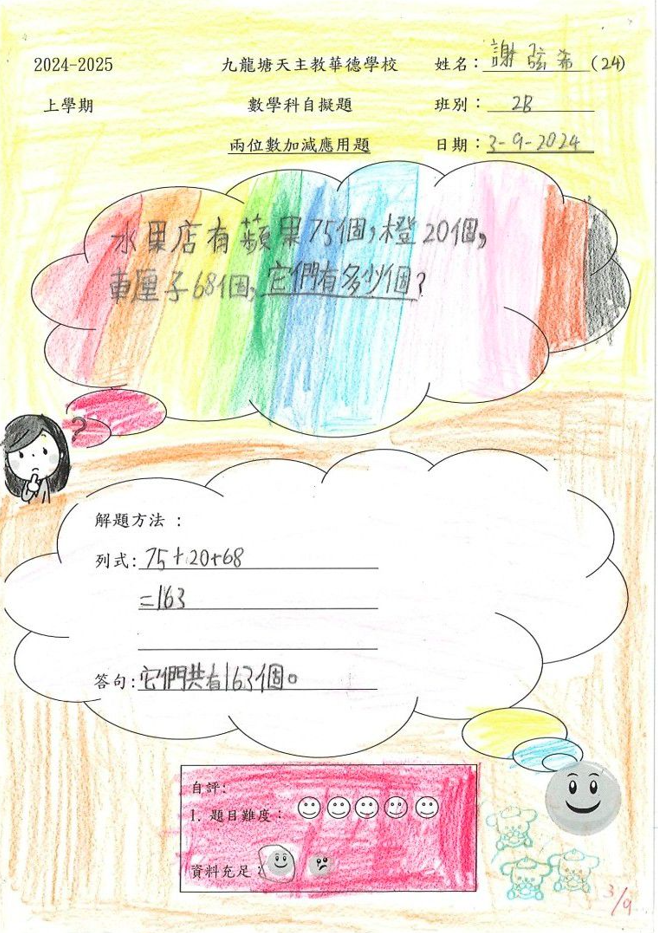 2024-2025 九龍塘天主教華德學校 姓名：謝弦希(24)
上學期 數學科自擬題 班別：2B
兩位數加減應用題 日期：3-9-2024
水果店有蘋果75個，橙20個，
車厘子68個，它們有多少個？
?
解題方法：
列式：75+20+68
=163
答句：它們共有163個。
自評：
1. 題目難度：
資料充足：
3/9